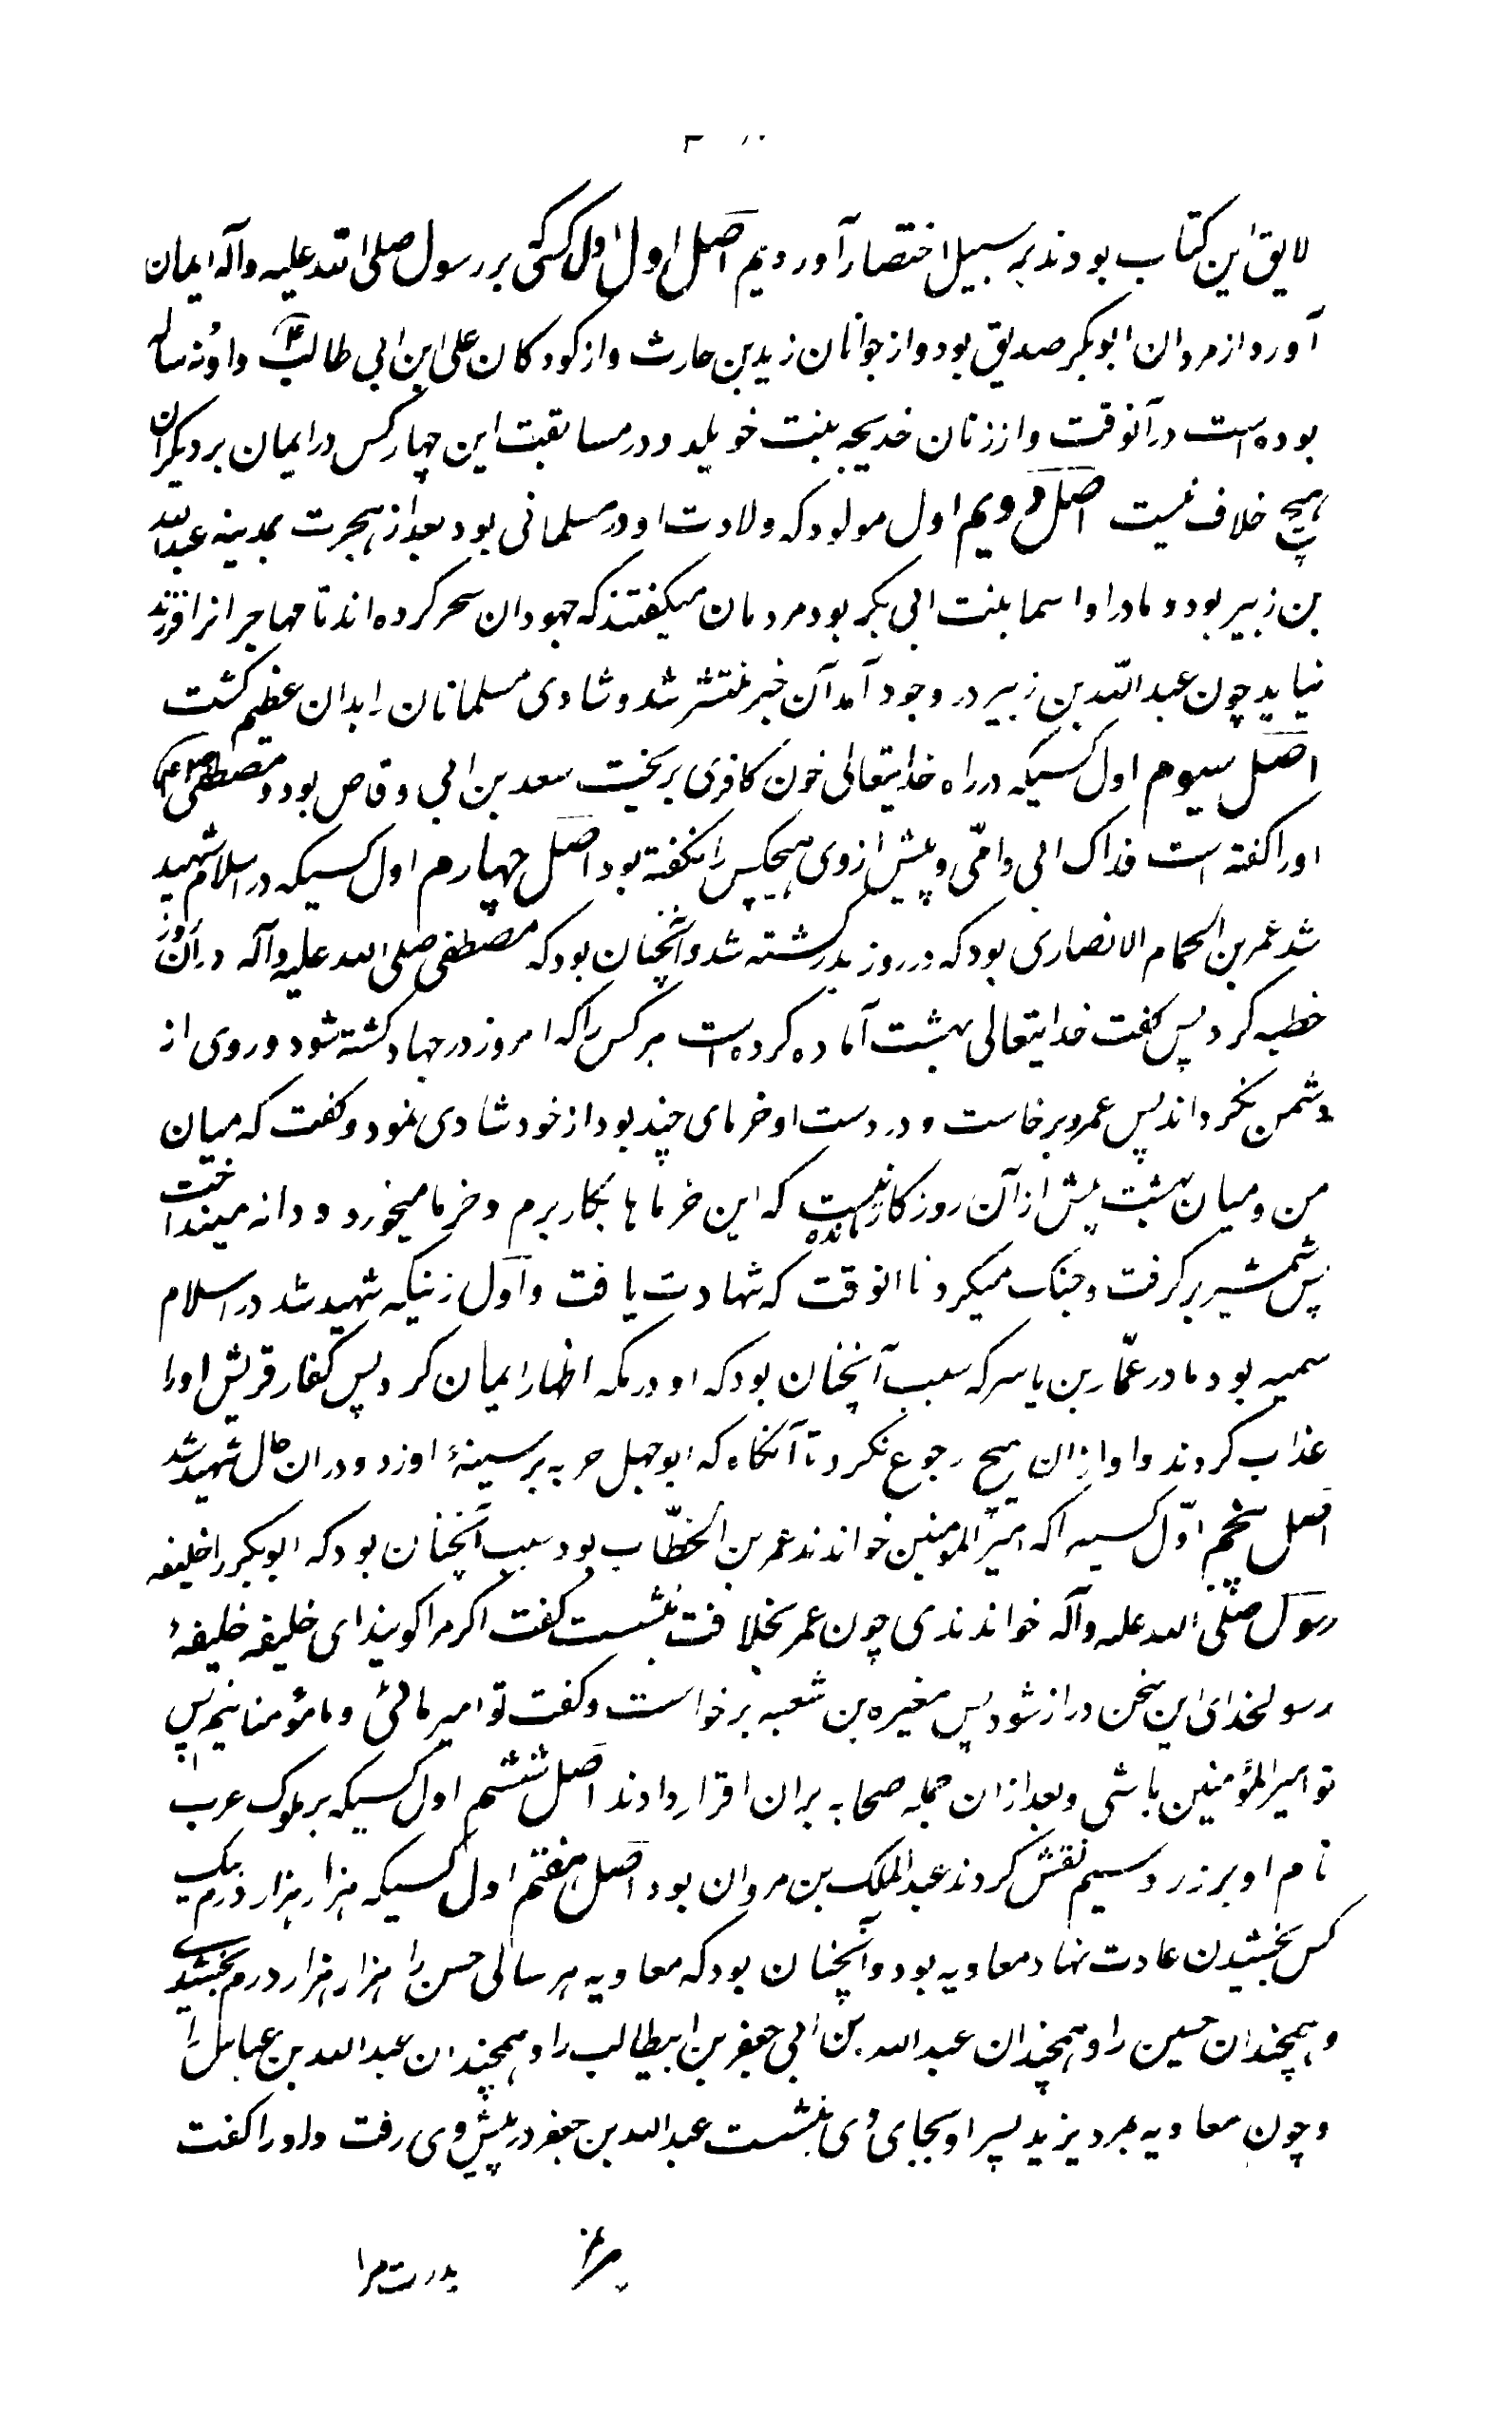 لایق این کتاب بودند بر سبیل اختصار آوردیم اصل اول اول کسی که بر رسول صلی الله علیه وآله ایمان
آورد از مردان ابوبکر صدیق بود و از جوانان زید بن حارث و از کودکان علی ابن ابی طالب و او نه ساله
بوده است در آنوقت و از زنان خدیجه بنت خویلد و در مسابقت این چهار کس در ایمان بر دیگران
هیچ خلاف نیست اصل دویم اول مولود که ولادت او در مسلمانی بود بعد از هجرت بمدینه عبدالله
بن زبیر بود و مادر او اسما بنت ابی بکر بود مردمان میگفتند که جهودان سحر کرده‌اند تا مهاجرانرا فرزند
نیاید چون عبدالله بن زبیر در وجود آمد آن خبر منتشر شد و شادی مسلمانان بدان عظیم گشت
اصل سیوم اول کسیکه در راه خدایتعالی خون کافری بریخت سعد بن ابی وقاص بود و مصطفی
اورا گفته است فداک ابی وامّی و پیش از وی هیچکس را نگفته بود اصل چهارم اول کسیکه در اسلام شهید
شد عمر بن الحمام الانصاری بود که در روز بدر کشته شد و آنچنان بود که مصطفی صلی الله علیه وآله در آن روز
خطبه کرد پس گفت خدایتعالی بهشت آماده کرده است هر کس را که امروز در جهاد کشته شود و روی از
دشمن نگرداند پس عمرو برخاست و در دست او خرمای چند بود از خود شادی نمود و گفت که میان
من و میان بهشت بیش از آن روزگار نیست مانده که این خرماها بکار برم و خرما میخورد و دانه میانداخت
پس شمشیر برگرفت و جنک میکرد تا انوقت که شهادت یافت و اول زنیکه شهید شد در اسلام
سمیه بود مادر عمّار بن یاسر که سبب آنچنان بود که او در مکه اظهار ایمان کرد پس کفار قریش اورا
عذاب کردند و او از ان هیچ رجوع نکرد تا آنگاه که ابوجهل حربه بر سینهٔ او زد و در ان حال شهید شد
اصل پنجم اوّل کسیرا که امیر المومنین خواندند عمر بن الخطّاب بود سبب آنچنان بود که ابوبکر را خلیفه
رسول صلّی الله علیه وآله خواندندی چون عمر بخلافت بنشست گفت اکر مرا گویند ای خلیفه خلیفهٔ
رسولخدای این سخن دراز شود پس مغیره بن شعبه برخواست و گفت تو امیر مائی و ما مؤمنانیم پس
تو امیر المؤمنین باشی و بعد از ان جمله صحابه بر ان اقرار دادند اصل ششم اول کسیکه بر ملوک عرب
نام او بر زر و سیم نقش کردند عبدالملک بن مروان بود اصل هفتم اول کسیکه هزار هزار درم بیک
کس بخشیدن عادت نهاد معاویه بود و آنچنان بود که معاویه هر سالی حسن را هزار هزار درم بخشیدی
و همچندان حسین را و همچندان عبدالله بن ابی جعفر بن ابیطالب را و همچندان عبدالله بن عباس را
و چون معاویه بمرد یزید پسر او بجای وی بنشست عبدالله بن جعفر در پیش وی رفت و اورا گفت
پدرت مرا